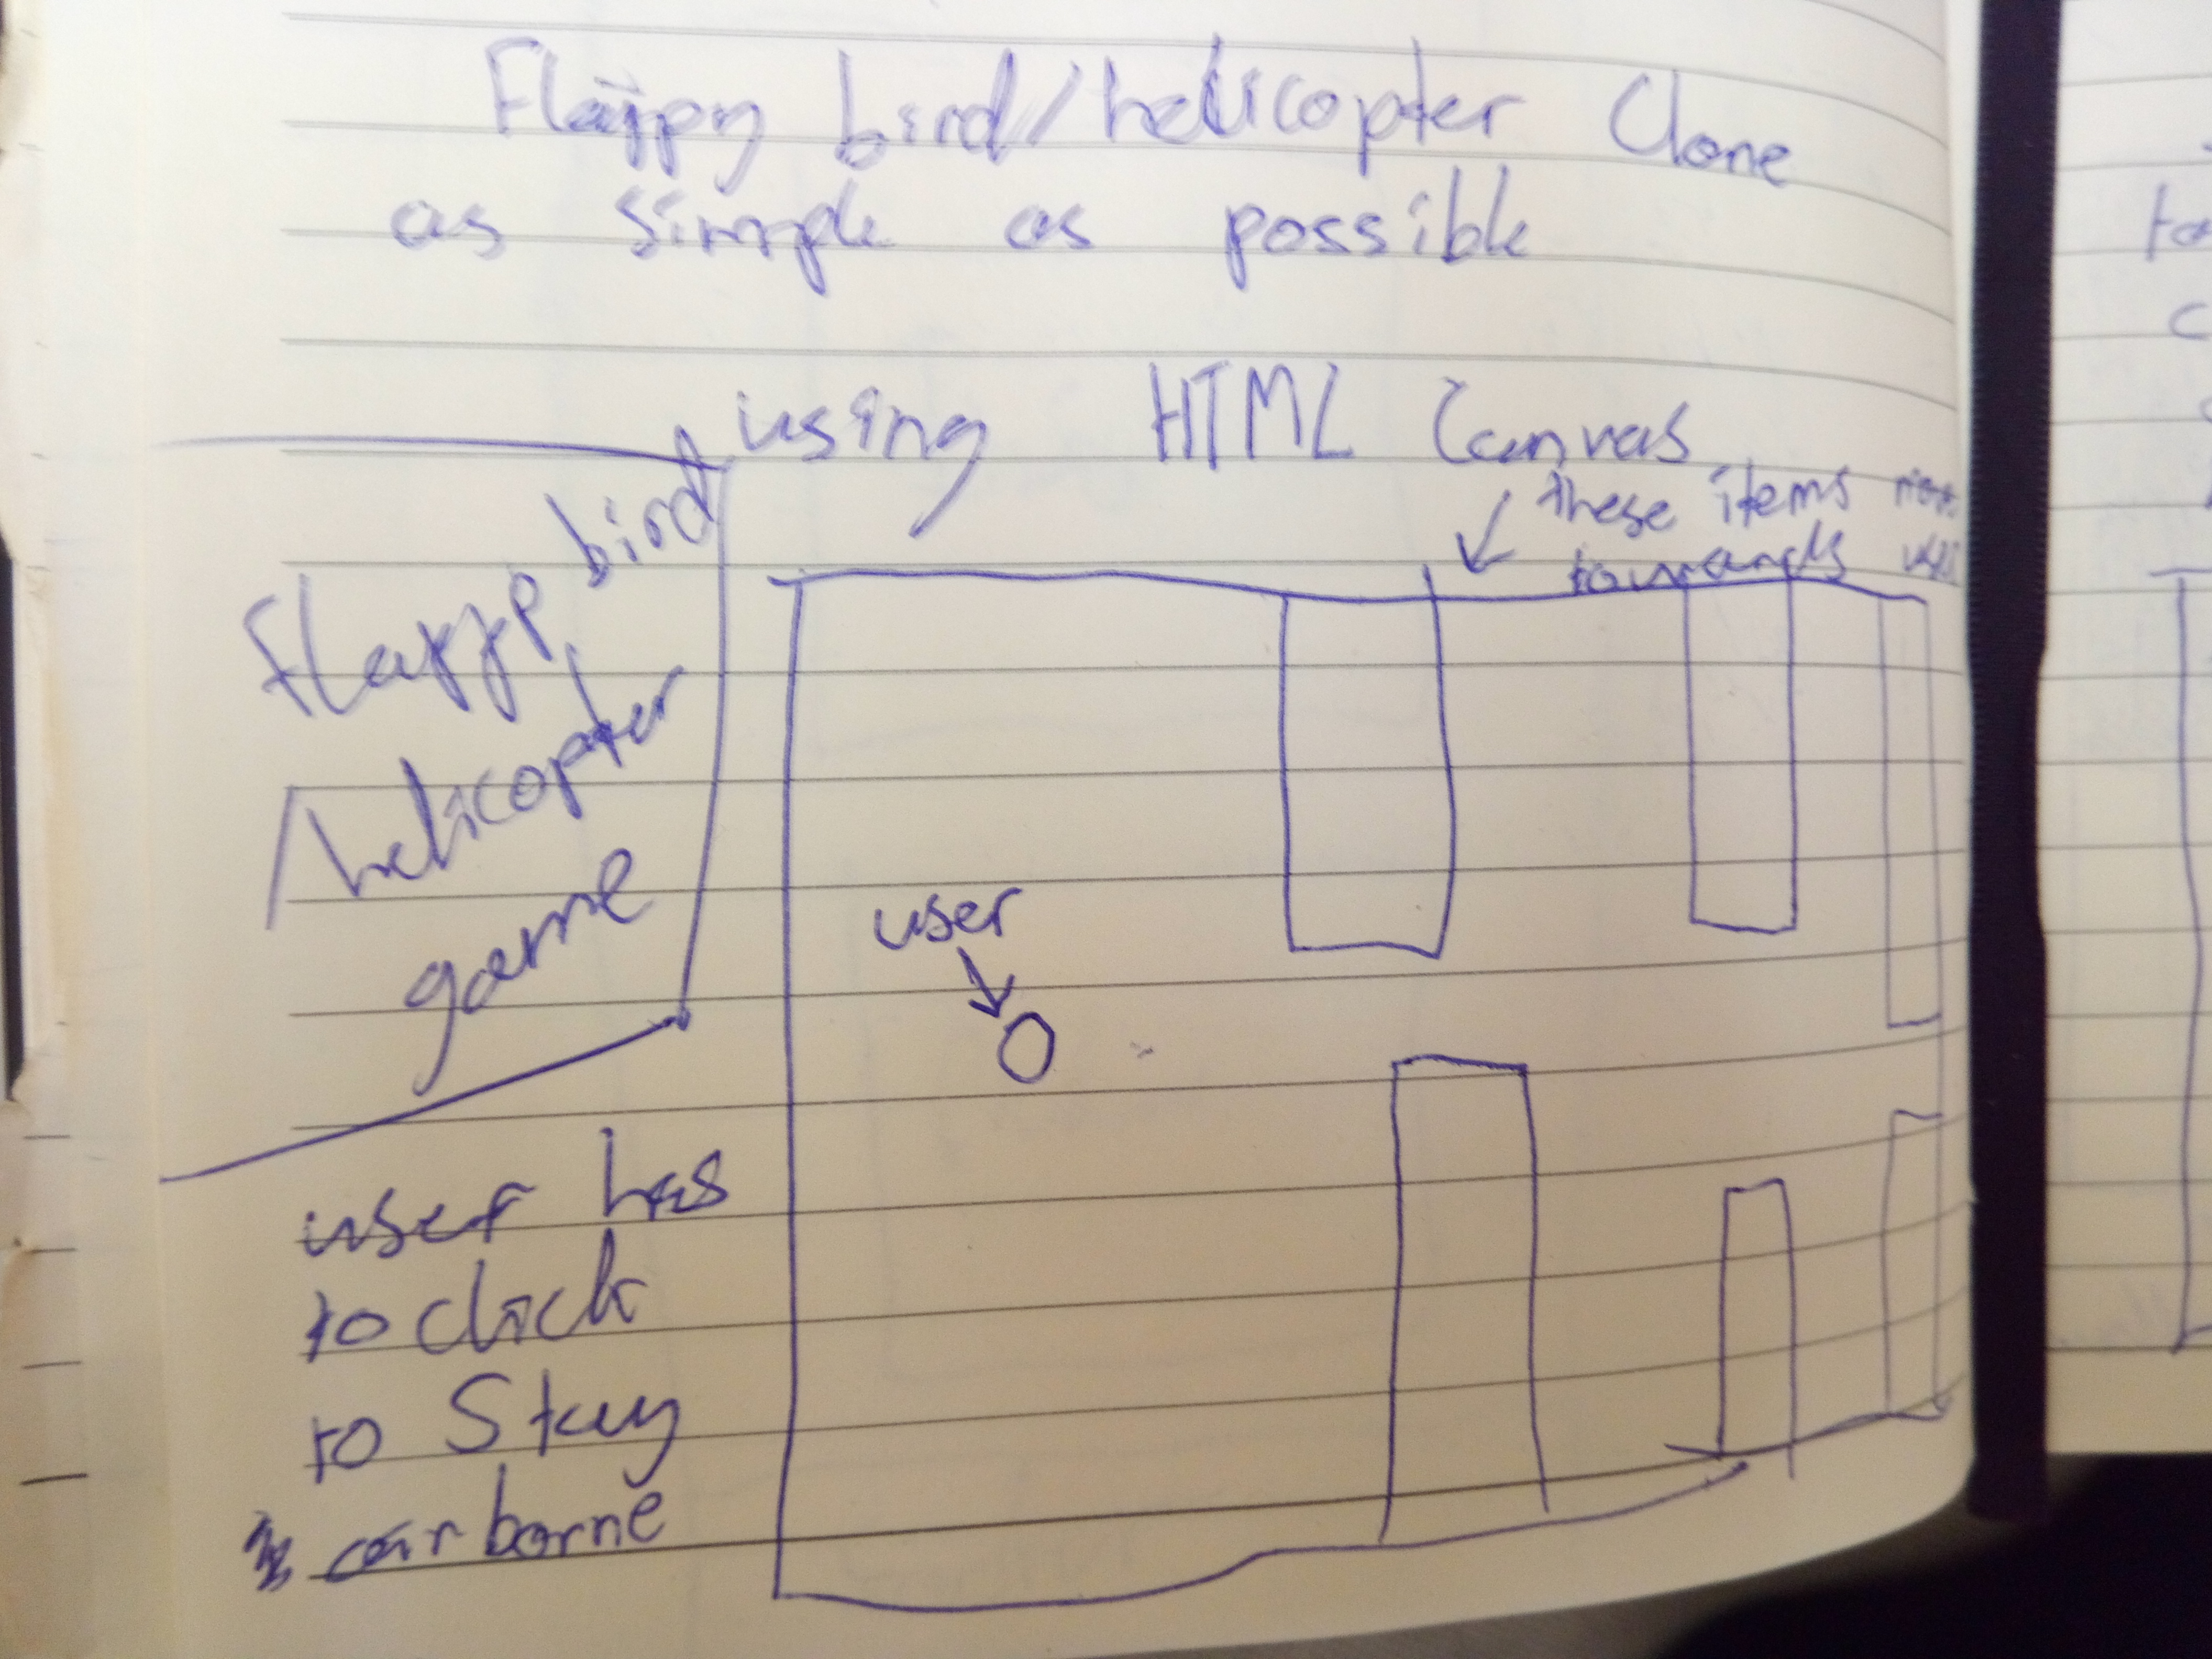 Flappy bird/helicopter Clone
as simple as possible
using HTML Canvas
these items
towards
Flappy bird
/helicopter
game
user
user has
to click
to Stay
airborne